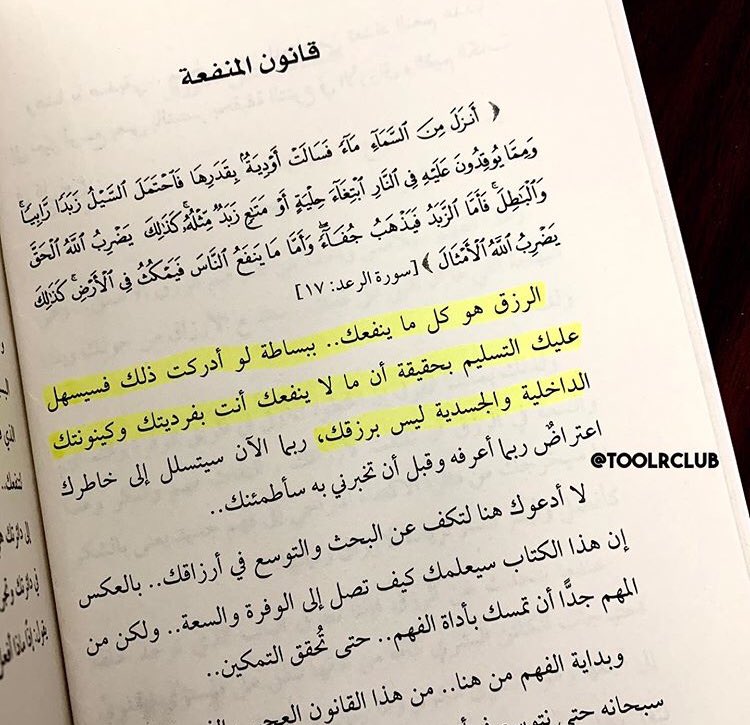 قانون المنفعة
﴿ أَنزَلَ مِنَ ٱلسَّمَآءِ مَآءً فَسَالَتْ أَوْدِيَةٌۢ بِقَدَرِهَا فَٱحْتَمَلَ ٱلسَّيْلُ زَبَدًا رَّابِيًاۚ
وَمِمَّا يُوقِدُونَ عَلَيْهِ فِي ٱلنَّارِ ٱبْتِغَآءَ حِلْيَةٍ أَوْ مَتَٰعٍ زَبَدٌ مِّثْلُهُۥۚ كَذَٰلِكَ يَضْرِبُ ٱللَّهُ ٱلْحَقَّ
وَٱلْبَٰطِلَۚ فَأَمَّا ٱلزَّبَدُ فَيَذْهَبُ جُفَآءًۖ وَأَمَّا مَا يَنفَعُ ٱلنَّاسَ فَيَمْكُثُ فِي ٱلْأَرْضِۚ كَذَٰلِكَ
يَضْرِبُ ٱللَّهُ ٱلْأَمْثَالَ ﴾ [سورة الرعد: ١٧]
الرزق هو كل ما ينفعك.. ببساطة لو أدركت ذلك فسيسهل
عليك التسليم بحقيقة أن ما لا ينفعك أنت بفرديتك وكينونتك
الداخلية والجسدية ليس برزقك، ربما الآن سيتسلل إلى خاطرك
اعتراضٌ ربما أعرفه وقبل أن تخبرني به سأطمئنك..
لا أدعوك هنا لتكف عن البحث والتوسع في أرزاقك.. بالعكس
إن هذا الكتاب سيعلمك كيف تصل إلى الوفرة والسعة.. ولكن من
المهم جدًّا أن تمسك بأداة الفهم.. حتى تُحقق التمكين..
وبداية الفهم من هنا.. من هذا القانون
سبحانه حتى
@TOOLRCLUB